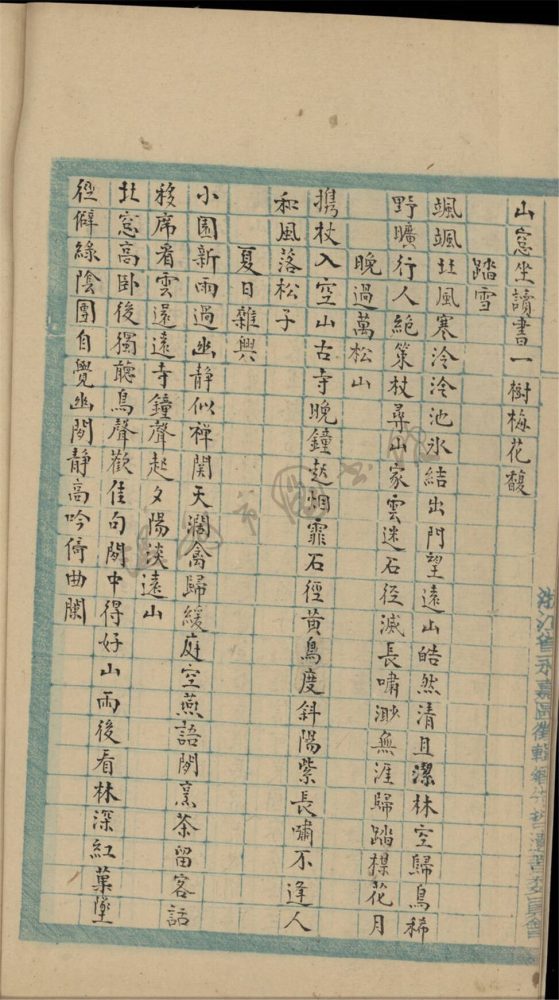 山窓坐讀書一樹梅花馥
踏雪
颯颯北風寒泠泠池氷結出門望遠山皓然清且潔林空歸鳥稀
野曠行人絶策杖尋山家雲迷石径滅長嘯渺無涯歸踏楳花月
晚過萬松山
携杖入空山古寺晚鐘起烟霏石徑黃鳥度斜陽紫長嘯不逢人
和風落松子
夏日雜興
小園新雨過幽静似禅関天濶禽歸緩庭空燕語閑烹茶留客話
移席看雲還遠寺鐘聲起夕陽淡遠山
北窓高卧後獨聽鳥聲歡佳句閑中得好山雨後看林深紅菓墜
徑僻綠陰團自覺幽閑静高吟倚曲闌
浙江省永嘉區徵輯鄉先哲遺著委員會